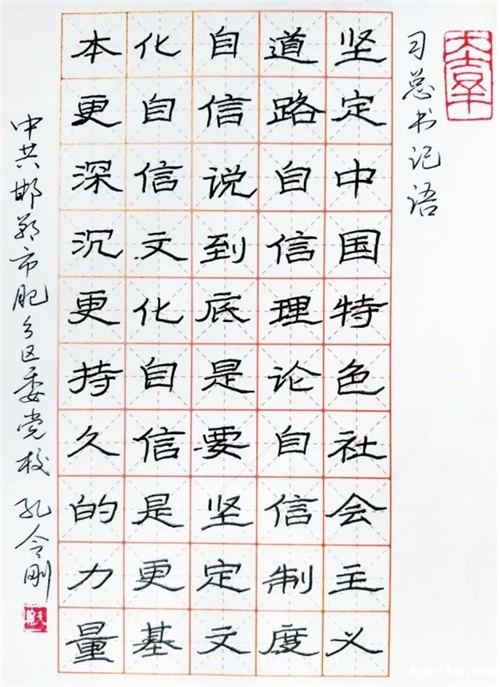 习总书记语
坚定中国特色社会主义
道路自信理论自信制度
自信说到底是要坚定文
化自信文化自信是更基
本更深沉更持久的力量
中共邯郸市肥乡区委党校 孔令刚